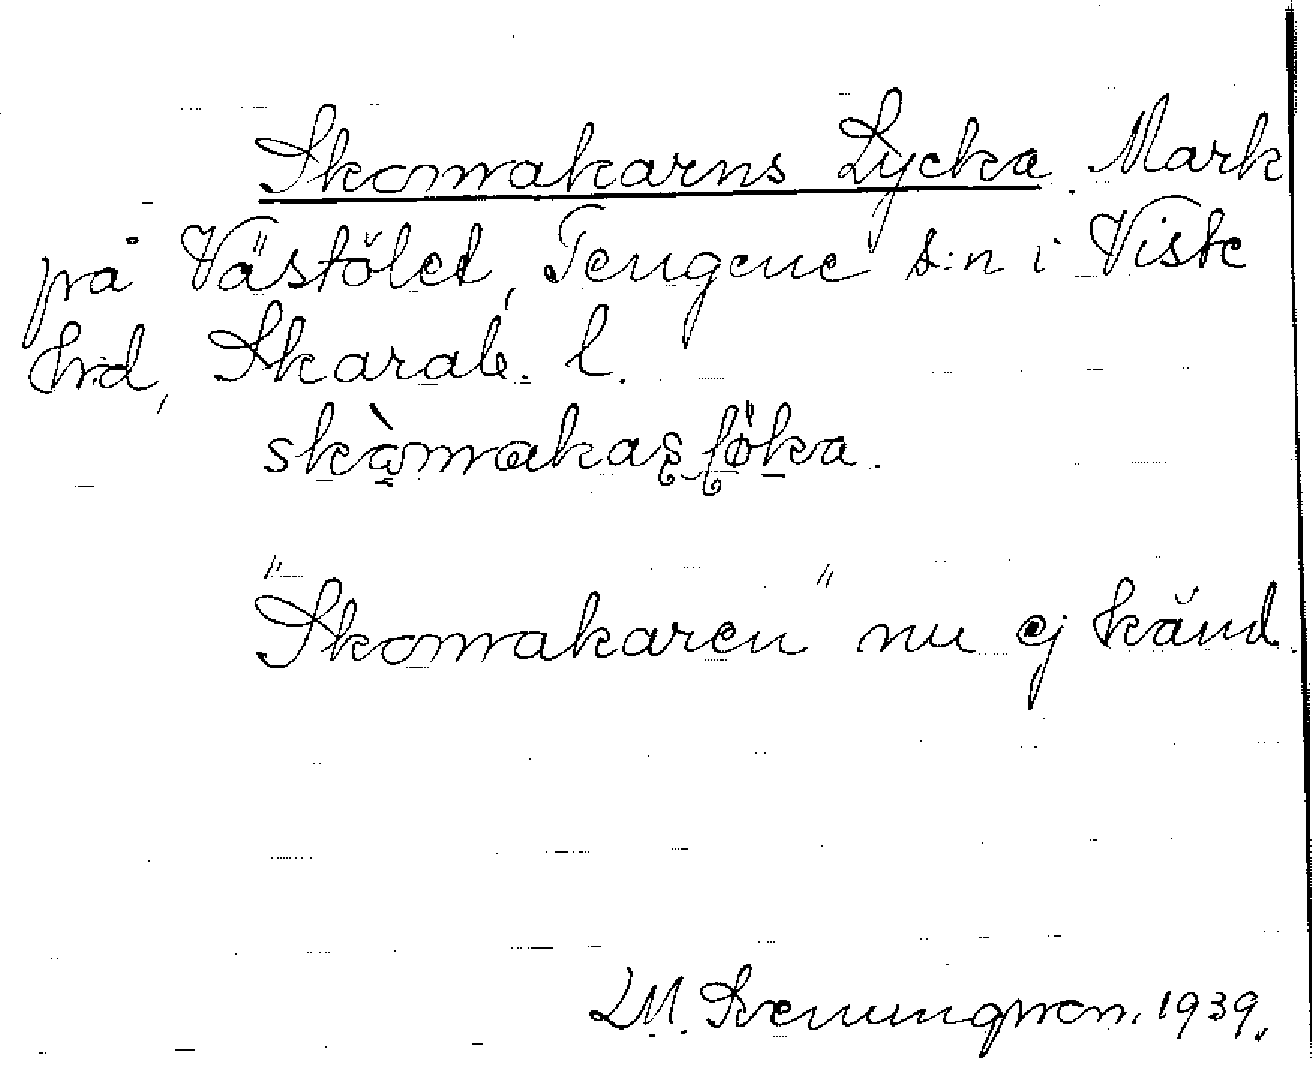 Skomakarns Lycka. Mark
på Västölet, Tengene s:n i Viste
hrd, Skarab. l.
skòmakaş ļöka.
"Skomakaren" nu ej känd.
1939.